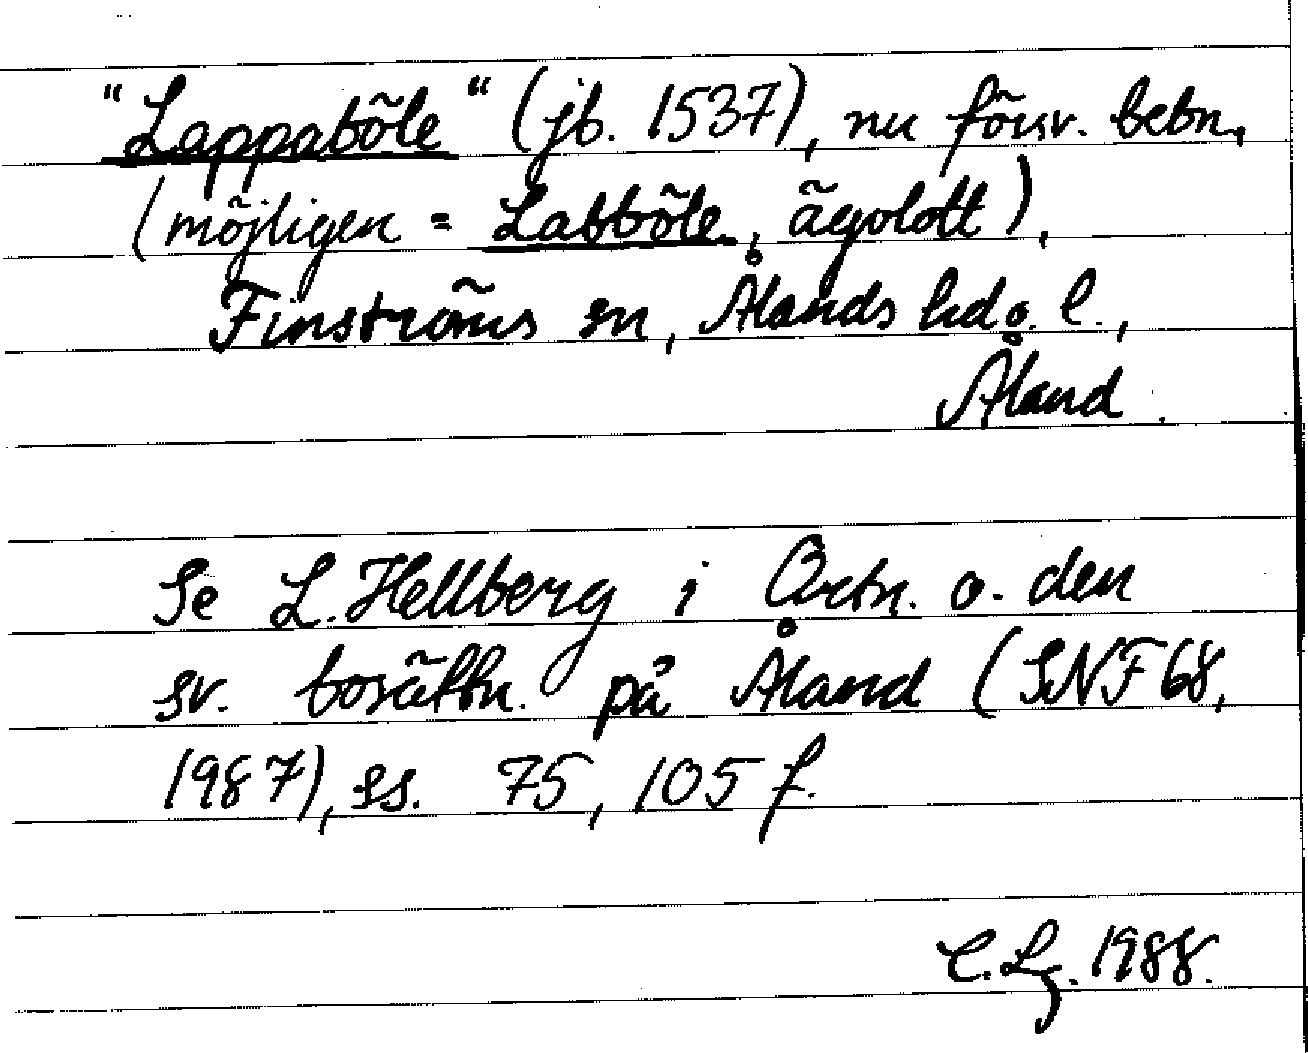 "Lappaböle" (jb. 1537), nu försv. bebn.,
(möjligen = Labböle, ägolott),
Finströms sn, Ålands hd o. l.,
Åland.
Se L. Hellberg i Ortn. o. den
sv. bosättn. på Åland (SNF 68,
1987), ss. 75, 105 f.
C. Lg. 1988.